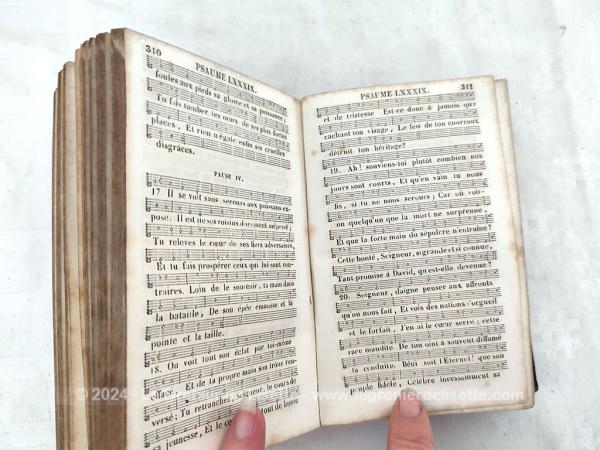 310
PSAUME LXXXIX.
foules aux pieds sa gloire et sa puissance;
Tu fais tomber les murs de ses plus fortes
places, Et rien n'égale enfin ses cruelles
disgrâces.
PAUSE IV.
17 Il se voit sans secours aux passans ex-
posé: Il est de ses voisins durement méprisé;
Tu relèves le cœur de ses fiers adversaires,
Et tu fais prospérer ceux qui lui sont con-
traires. Loin de le soutenir, ta main dans
la bataille, De son épée émousse et la
pointe et la taille.
18. On voit tout son éclat par toi-même
effacé; Et de ta propre main son trône ren-
versé; Tu retranches, Seigneur, le cours de
sa jeunesse, Et le tout de honte
PSAUME LXXXIX.
311
et de tristesse Est-ce donc à jamais que
cachant ton visage, Le feu de ton courroux
détruit ton héritage?
19. Ah! souviens-toi plutôt combien nos
jours sont courts, Et qu'en vain tu nous
fis, si tu ne nous secours; Car où voit-
on quelqu'un que la mort ne surprenne,
Et que la forte main du sépulcre n'entraîne?
Cette bonté, Seigneur, si grande et si connue,
Tant promise à David, qu'est-elle devenue?
20. Seigneur, daigne penser aux affronts
qu'on nous fait, Et vois des nations l'orgueil
et le forfait. J'en ai le cœur serré; cette
race maudite De ton oint, ô Seigneur, blâme
la conduite. Béni soit l'Eternel! que son
peuple fidèle, Célèbre incessamment sa
© 2024 - legrenierdelisette.com